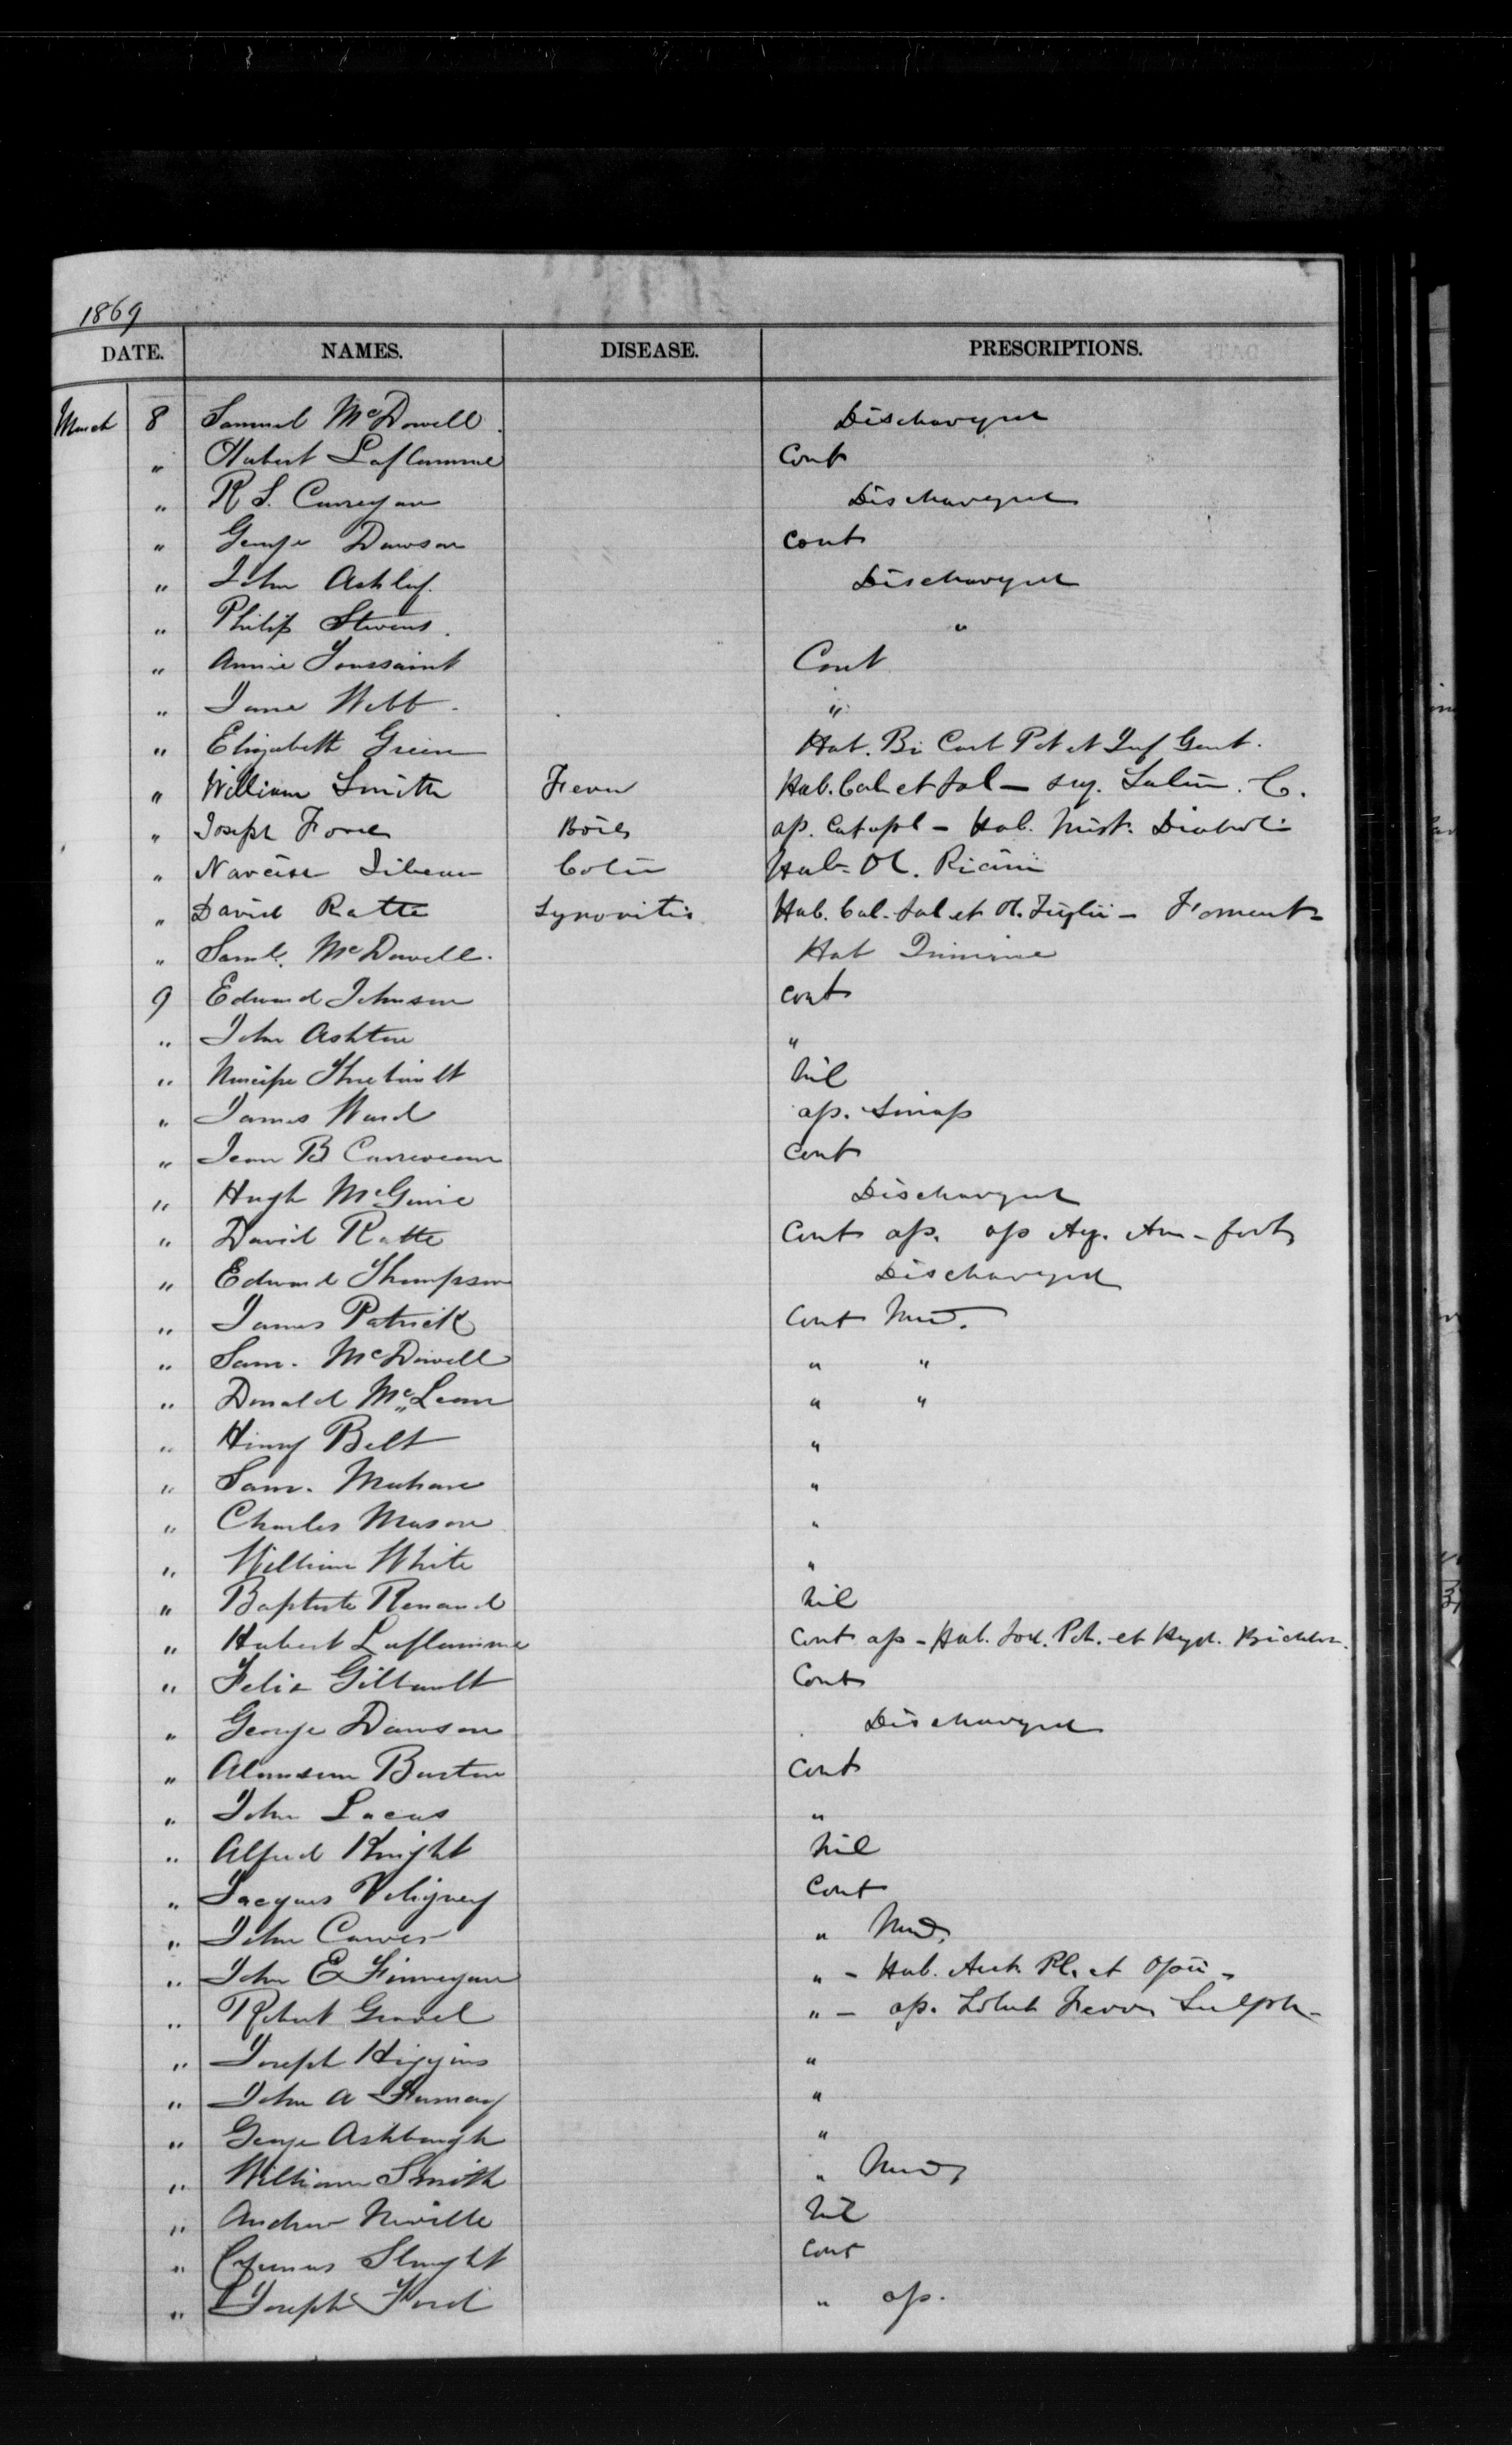 1869
DATE. NAMES. DISEASE. PRESCRIPTIONS.
March 8 Samuel McDowell Discharged
" Hubert Laflamme Cont
" R S. Discharged
" George Dawson Cont
" John Ashley Discharged
" Philip Stevens "
" Annie Toussaint Cont
" Jane Webb "
" Elizabeth Green Hab. Bi Carb Pot et Inf Gent.
" William Smith Fever Hab. Cal et Jal -
" Joseph Ford Boils ap. Catapl - Hab. Mist. Diaboli
" Narcisse Colic Hab. Ol. Ricini
" David Ratte Synovitis Hab. Cal. Jal et Ol. Tiglii - Foment
" Saml. McDowell. Hab Quinine
9 Edward Johnson Cont
" John Ashton "
" nil
" James Ward ap. Sinap
" Jean B Cont
" Hugh McGuire Discharged
" David Ratte Cont ap. ap Aq. Am - fort
" Edward Thompson Discharged
" James Patrick Cont Med.
" Sam. McDowell " "
" Donald McLean " "
" Henry Belt "
" Sam. "
" Charles Mason "
" William White "
" Baptiste Renaud nil
" Hubert Laflamme Cont ap - Hab. Iod. Pot. et Hyd. Bichlor.
" Felix Gilbault Cont
" George Dawson Discharged
" Burton Cont
" John Lucas "
" Alfred Knight nil
" Jacques Cont
" John " Med.
" John E Finnegan " - Hab. Pl. et Opii -
" Robert " - ap. Ferri Sulph -
" Joseph Higgins "
" John A "
" George Ashbaugh "
" William Smith " Med
" Andrew Neville nil
" Slaught Cont
" Joseph Ford " ap.